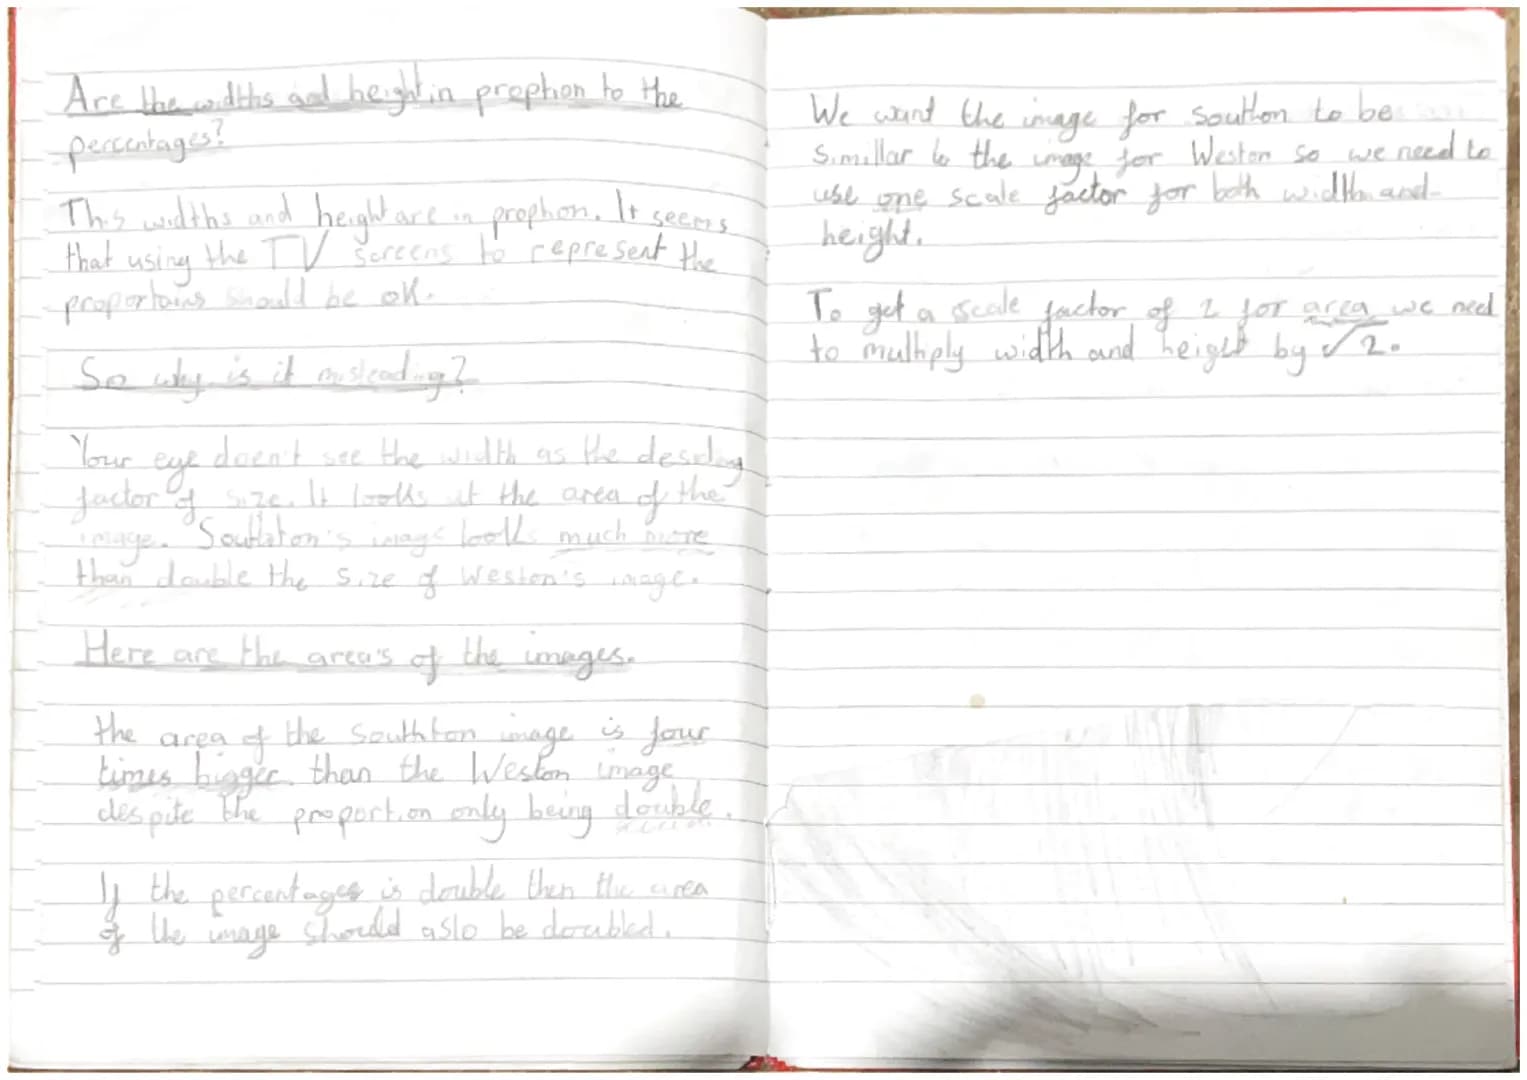 Are the widths and height in proption to the
percentages?
This widths and height are in proption. It seems
that using the TV screens to represent the
proportains should be ok.
So why is it misleading?
Your eye doen't see the width as the desiding
factor of size. It looks at the area of the
image. Southton's image looks much more
than double the size of Weston's image.
Here are the area's of the images.
the area of the Southton image is four
times bigger than the Weston image
despite the proportion only being double.
If the percentages is double then the area
of the image should aslo be doubled.
We want the image for Southon to be
simillar to the image for Weston so we need to
use one scale factor for both width and
height.
To get a scale factor of 2 for area we need
to multiply width and height by √2.